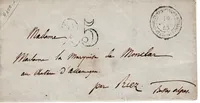 25
Madame
Madame la Marquise de Monclar
au château d'allemagne
par Riez
Basses alpes